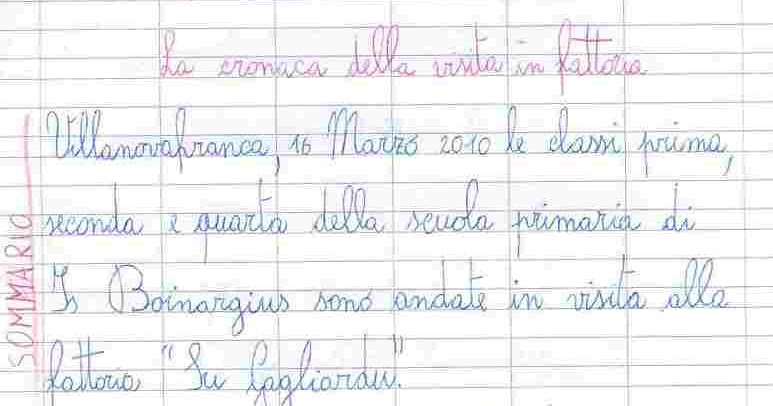 La cronaca della visita in fattoria
Villanovafranca, 16 Marzo 2010 le classi prima,
seconda e quarta della scuola primaria di
Is Boinargius sono andate in visita alla
fattoria "Su Gagliardu".
SOMMARIO